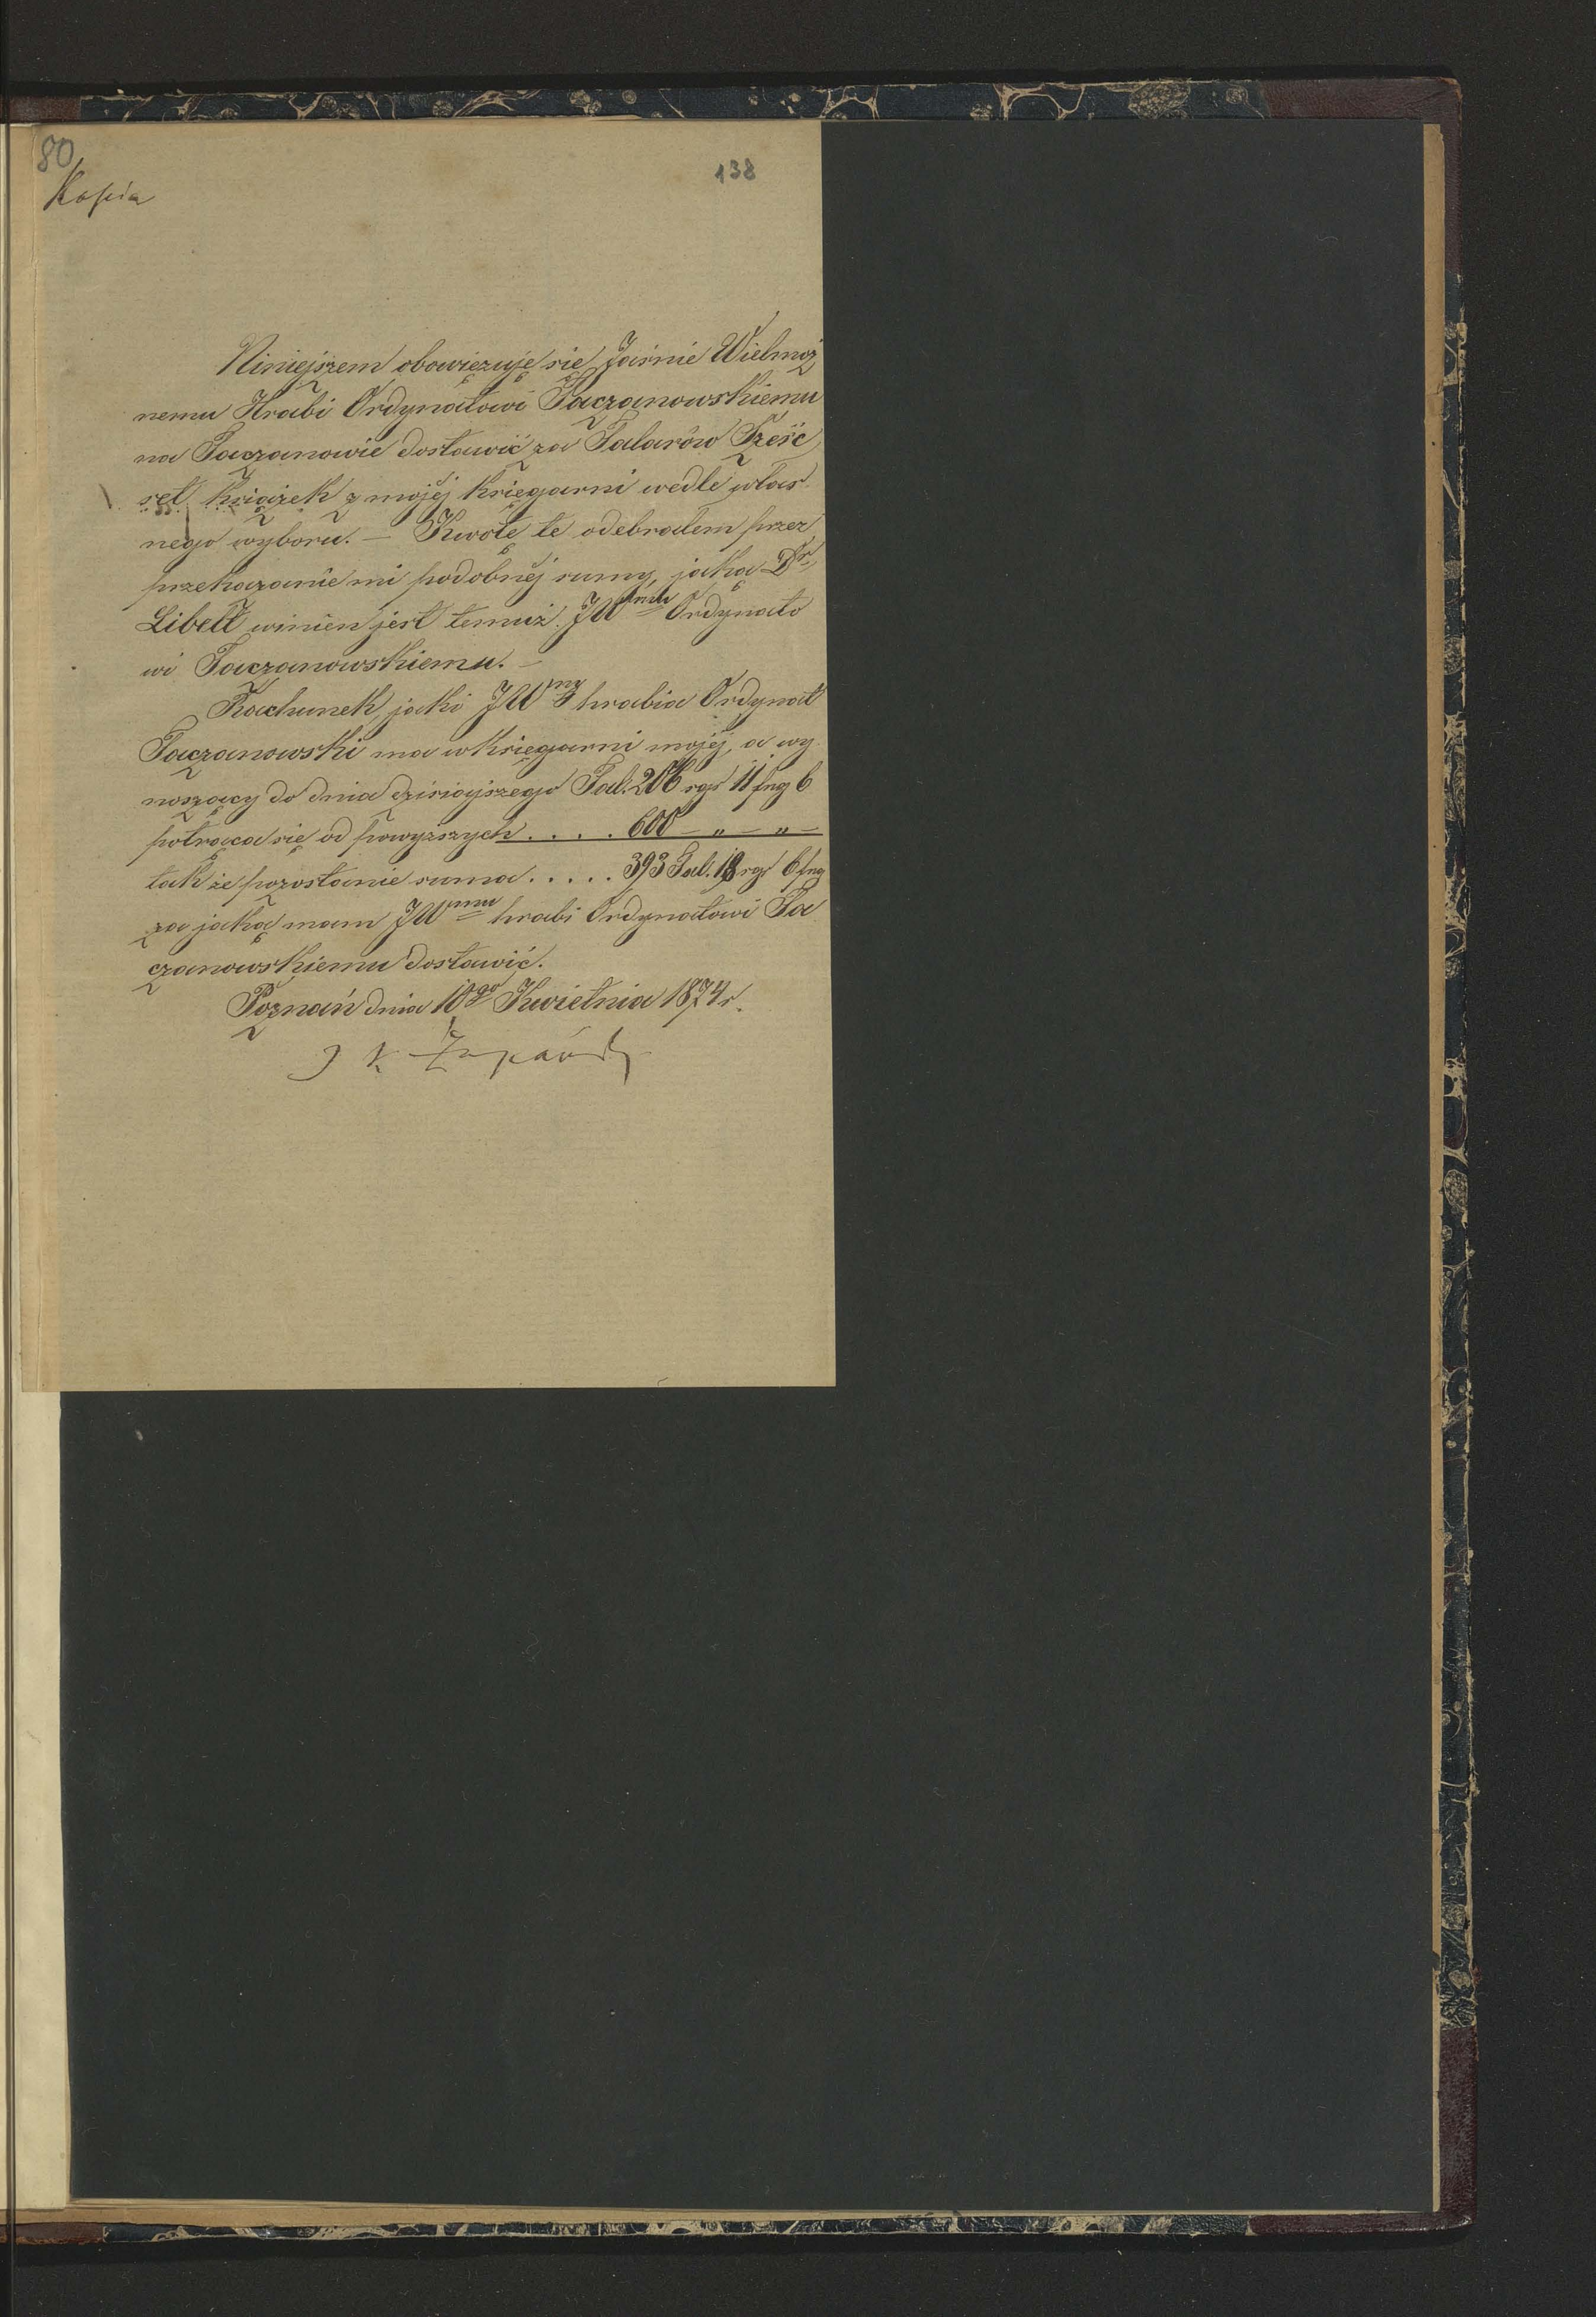 80
138
Kopia
Niniejszem obowięzuję się Jaśnie Wielmoż
nemu Hrabi Ordynatowi Taczanowskiemu
na Taczanowie dostawić za Talarów Sześć
set książek z mojéj księgarni wedle włas
nego wyboru. — Kwotę tę odebrałem przez
przekazanie mi podobnéj sumy, jaką Dr
Libelt winien jest temuż JWmu Ordynato
wi Taczanowskiemu. —
Rachunek, jaki JWny hrabia Ordynat
Taczanowski ma w księgarni mojéj, a wy
noszący do dnia dzisiajszego Tal. 206 sgr 11 fng 6
potrąca się od powyższych . . . . 600 — " — " —
tak że pozostanie suma . . . . . 393 Tal. 18 sgr 6 fng
za jaką mam JWmu hrabi Ordynatowi Ta
czanowskiemu dostawić.
Poznań dnia 10go Kwietnia 1874 r.
J K Żupański